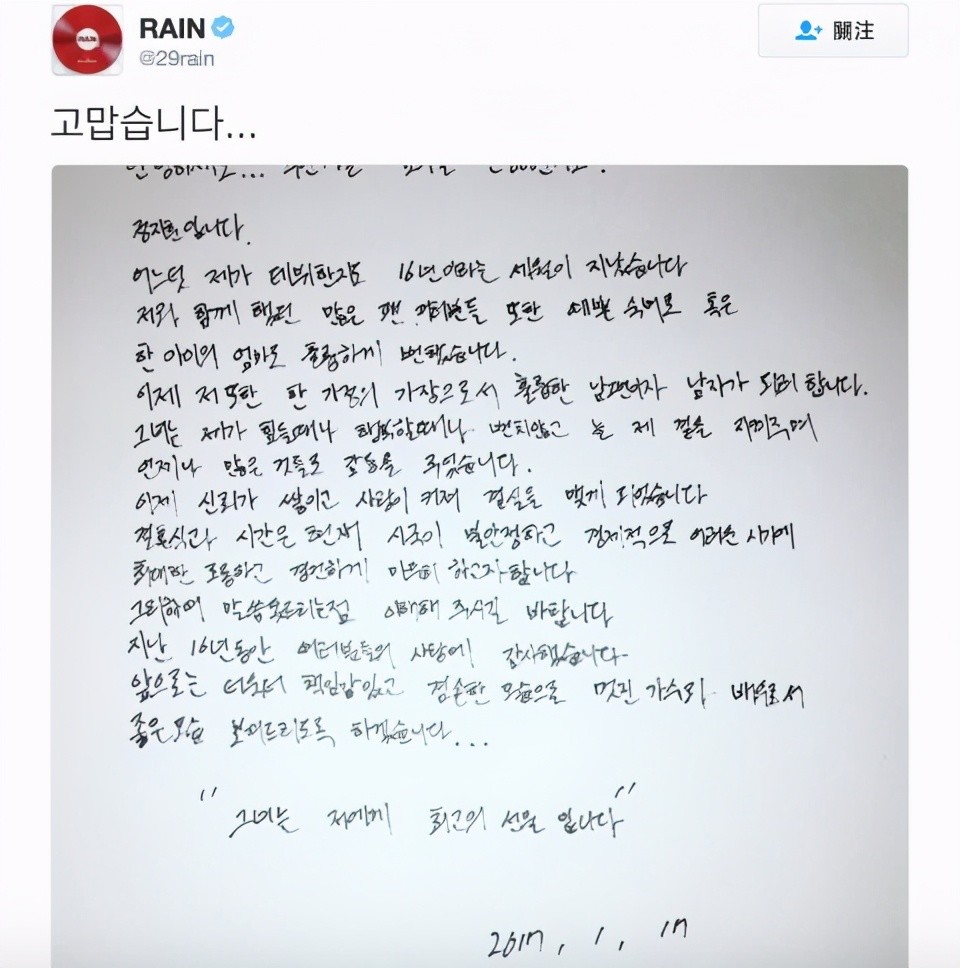 RAIN
@29rain
關注
고맙습니다...
정지훈입니다.
어느덧 제가 데뷔한지도 16년이라는 세월이 지났습니다
저와 함께 했던 많은 팬 여러분들 또한 숙녀로 혹은
한 아이의 엄마로 훌륭하게 변했습니다.
이제 저 또한 한 가정의 가장으로서 훌륭한 남편이자 남자가 되려 합니다.
그녀는 제가 힘들때나 행복할때나 변치않고 늘 제 곁을 지켜주며
언제나 많은 것들로 감동을 주었습니다.
이제 신뢰가 쌓이고 사랑이 커져 결실을 맺게 되었습니다
결혼식과 시간은 현재 시국이 불안정하고 경제적으로 어려운 시기에
최대한 조용하고 경건하게 마무리 하고자합니다
그리하여 말씀못드리는점 이해해 주시길 바랍니다
지난 16년동안 여러분들의 사랑에 감사했습니다
앞으로는 더욱더 책임감있고 겸손한 모습으로 멋진 가수와 배우로서
좋은모습 보여드리도록 하겠습니다...
"그녀는 저에게 최고의 선물 입니다"
2017, 1, 17